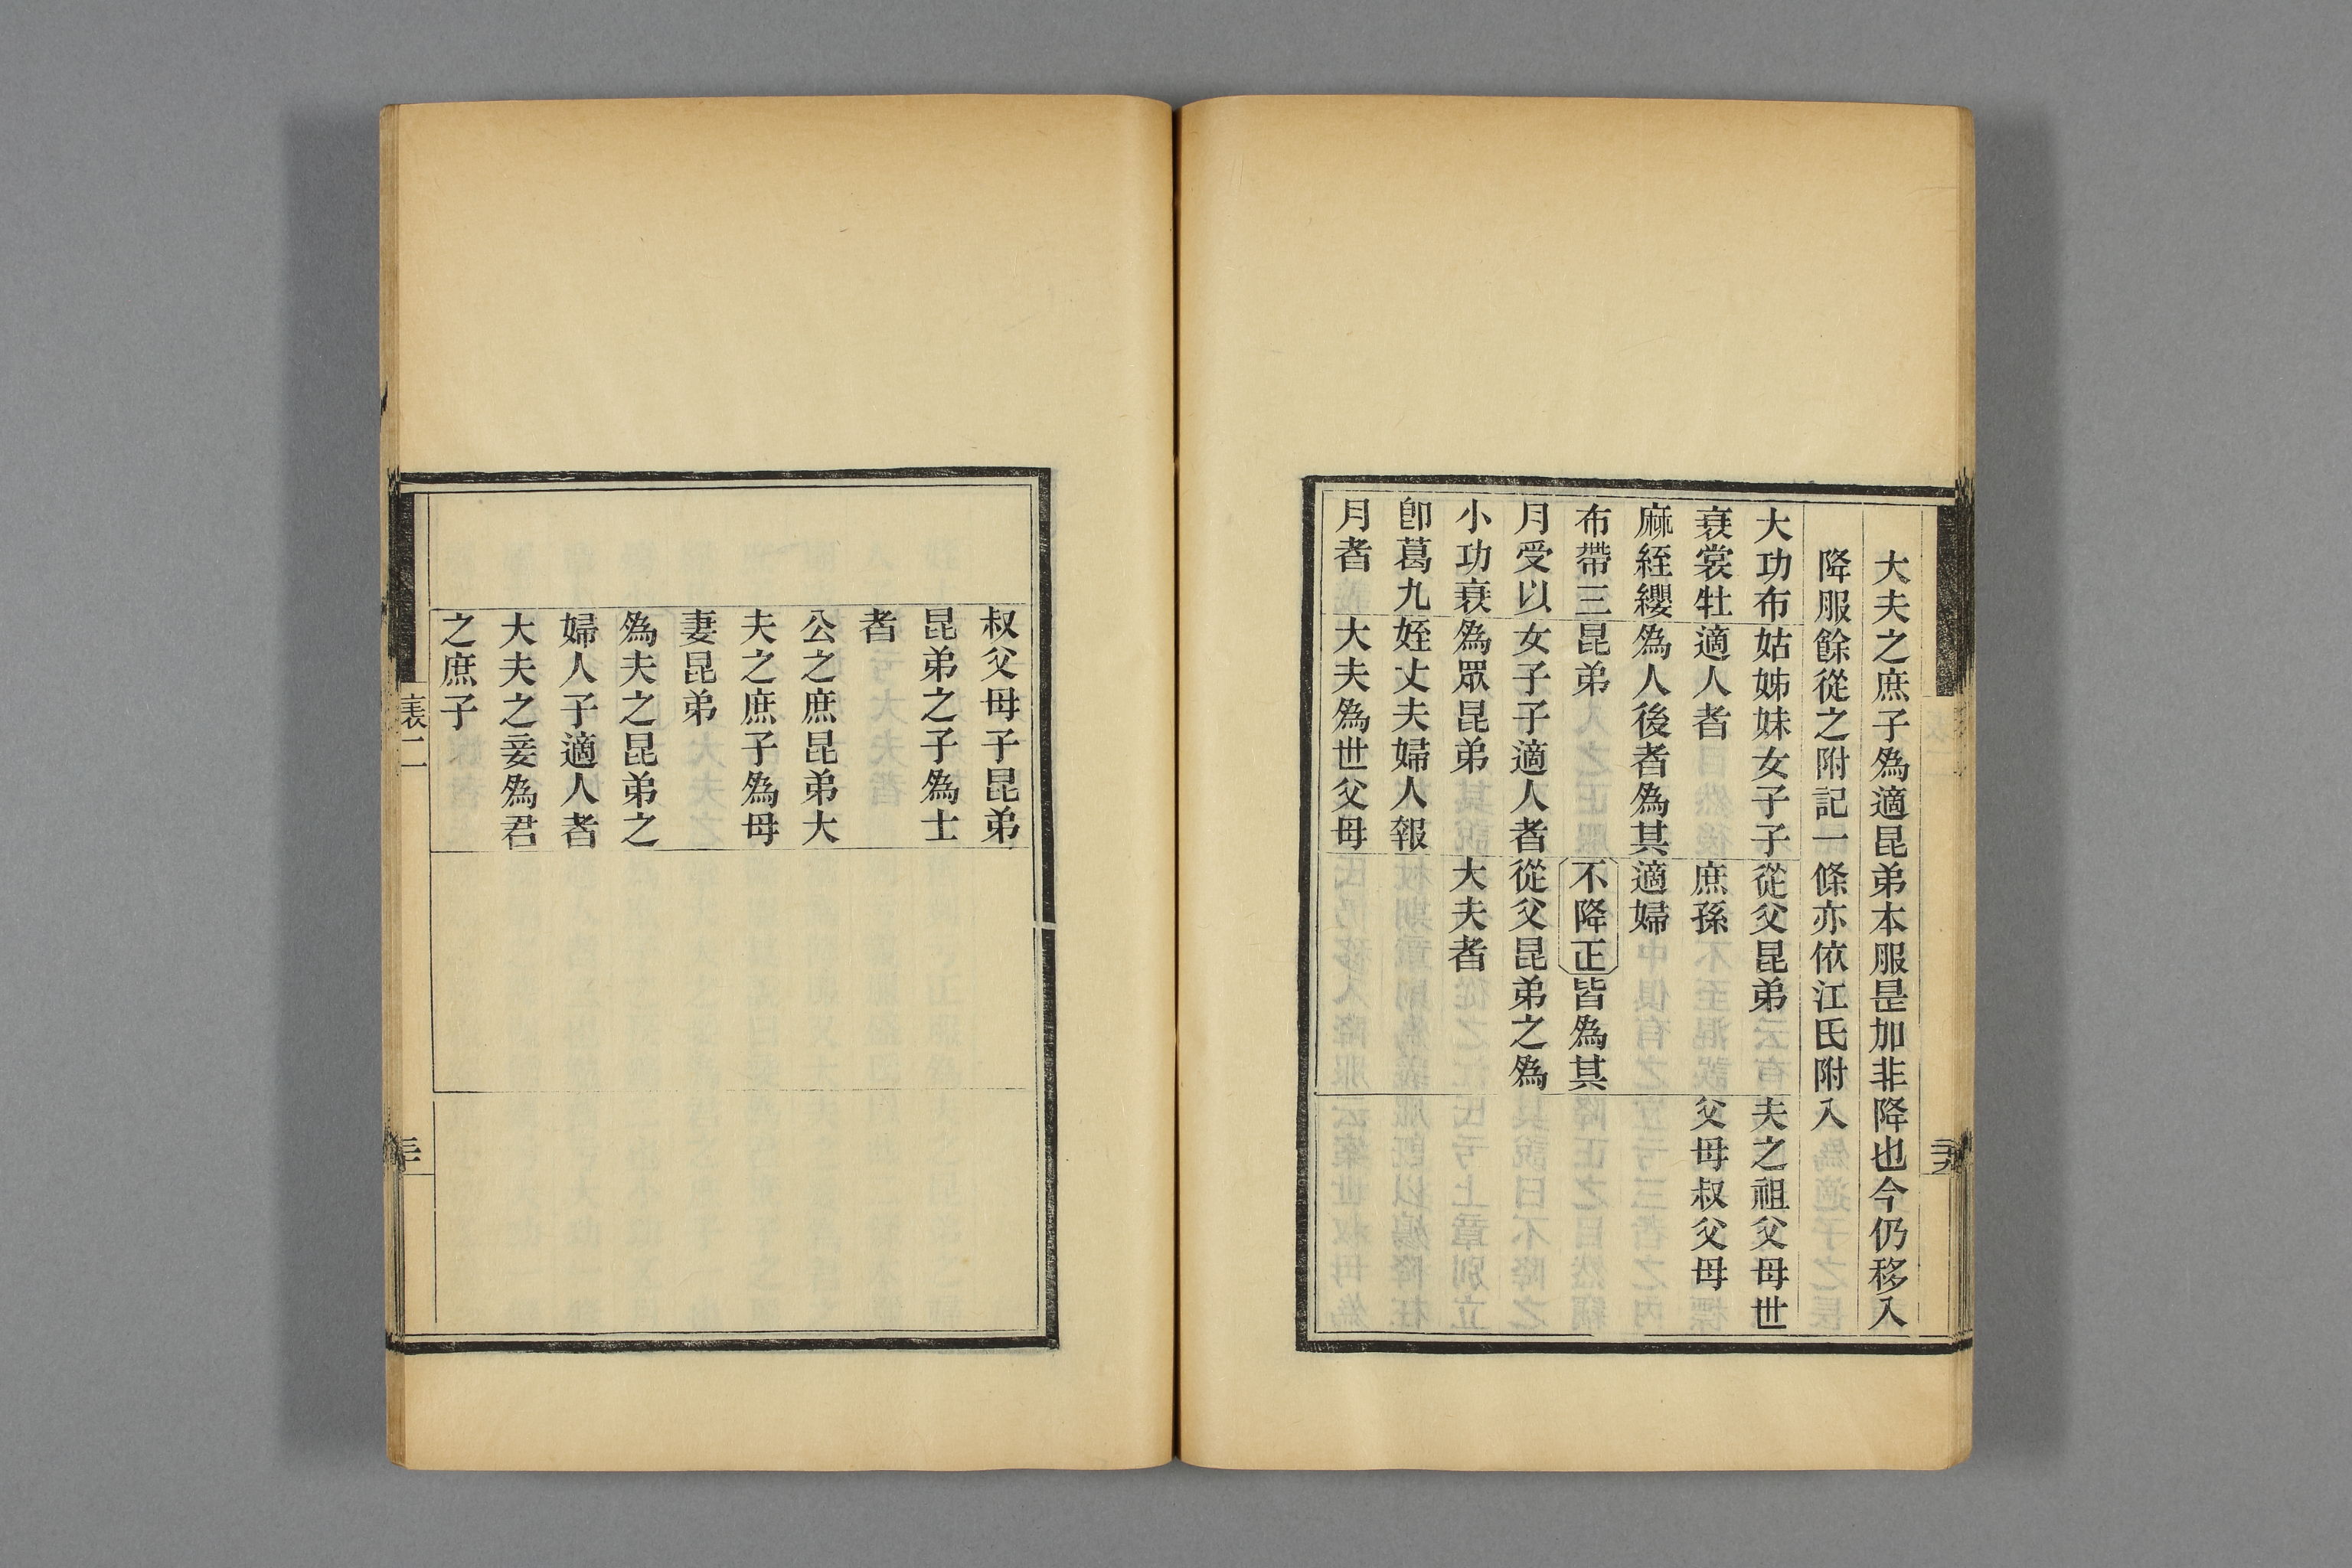 大夫之庶子爲適昆弟本服是加非降也今仍移入
降服餘從之附記一條亦依江氏附入
大功布
衰裳牡
麻絰纓
布帶三
月受以
小功衰
卽葛九
月者
姑姊妹女子子
適人者
爲人後者爲其
昆弟
女子子適人者
爲眾昆弟
姪丈夫婦人報
大夫爲世父母
從父昆弟
庶孫
適婦
不降正皆爲其
從父昆弟之爲
大夫者
夫之祖父母世
父母叔父母
叔父母子昆弟
昆弟之子爲士
者
公之庶昆弟大
夫之庶子爲母
妻昆弟
爲夫之昆弟之
婦人子適人者
大夫之妾爲君
之庶子
表二